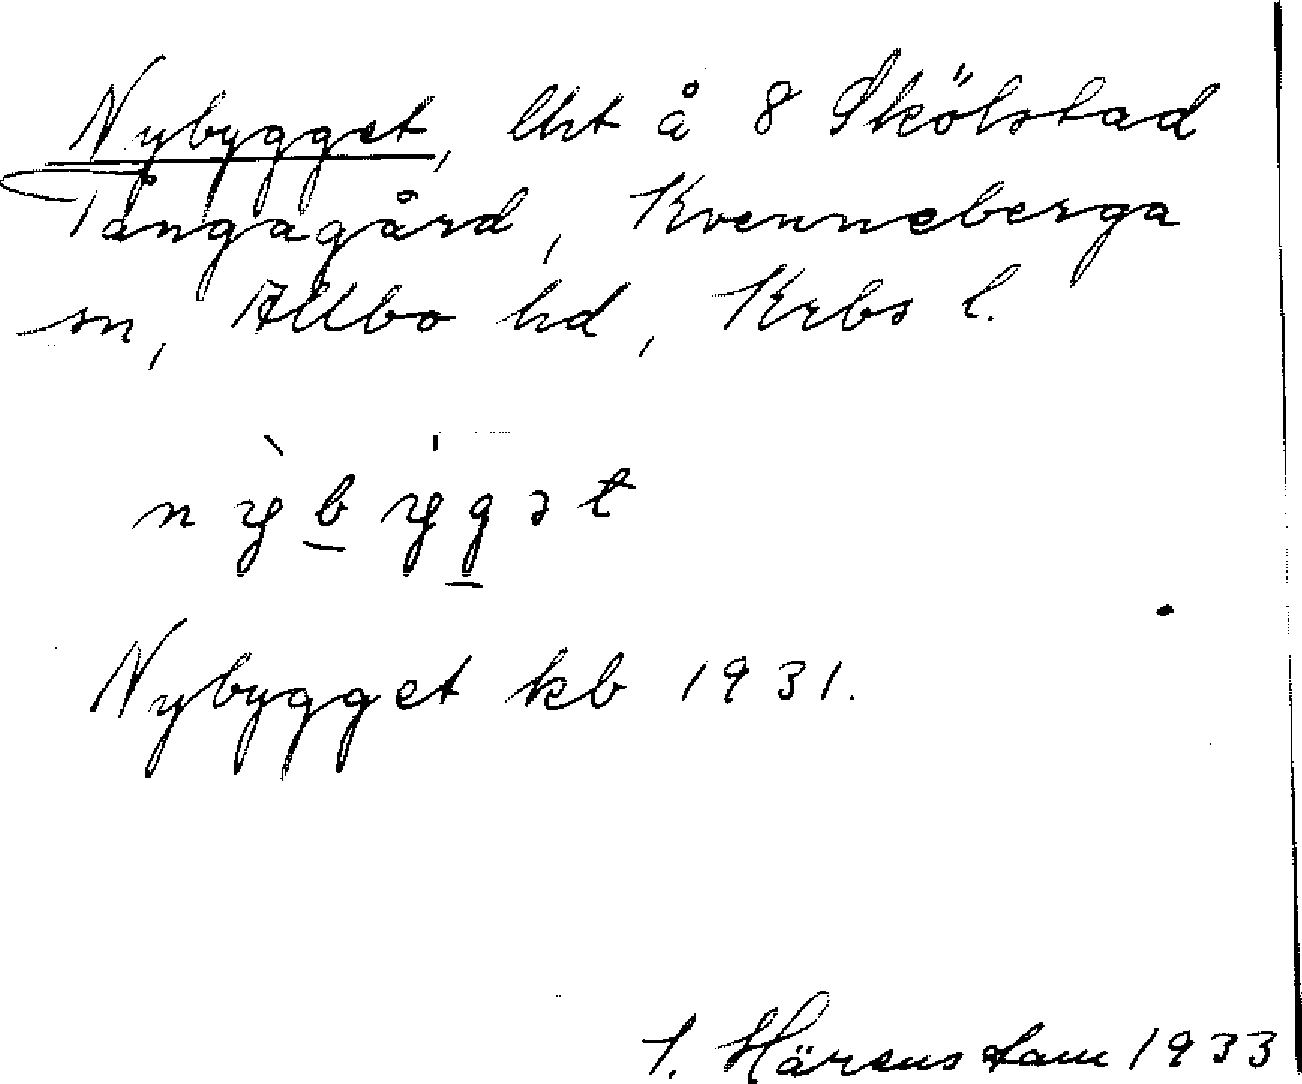 Nybygget, lht å 8 Skölstad
Tångagård, Kvenneberga
sn, Allbo hd, Krbs l.
nỳbýgət
Nybygget kb 1931.
Härenstam 1933